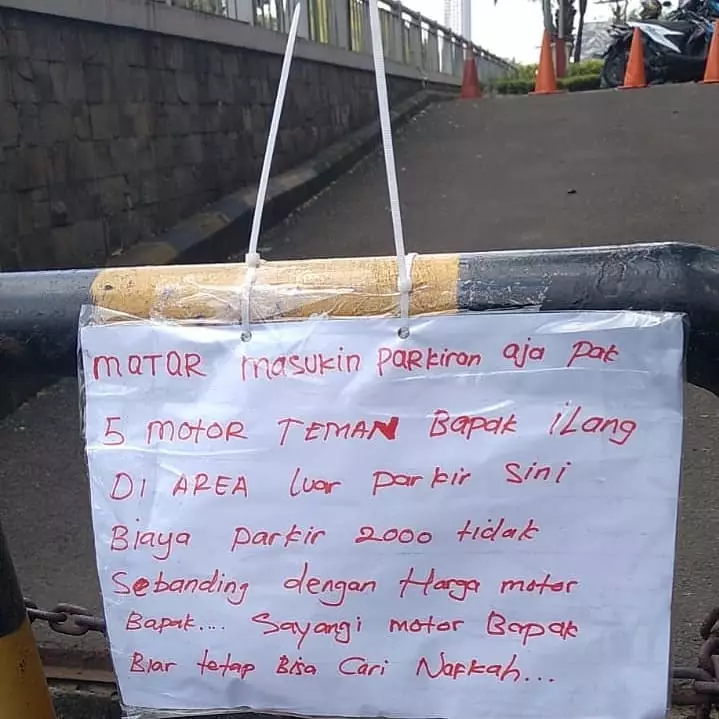 MOTOR masukin PARkiran aja pak
5 MOTOR TEMAN Bapak iLang
DI AREA luar parkir Sini
Biaya parkir 2000 tidak
Sebanding dengan Harga motor
Bapak.... Sayangi motor Bapak
Biar tetap Bisa Cari Nafkah...